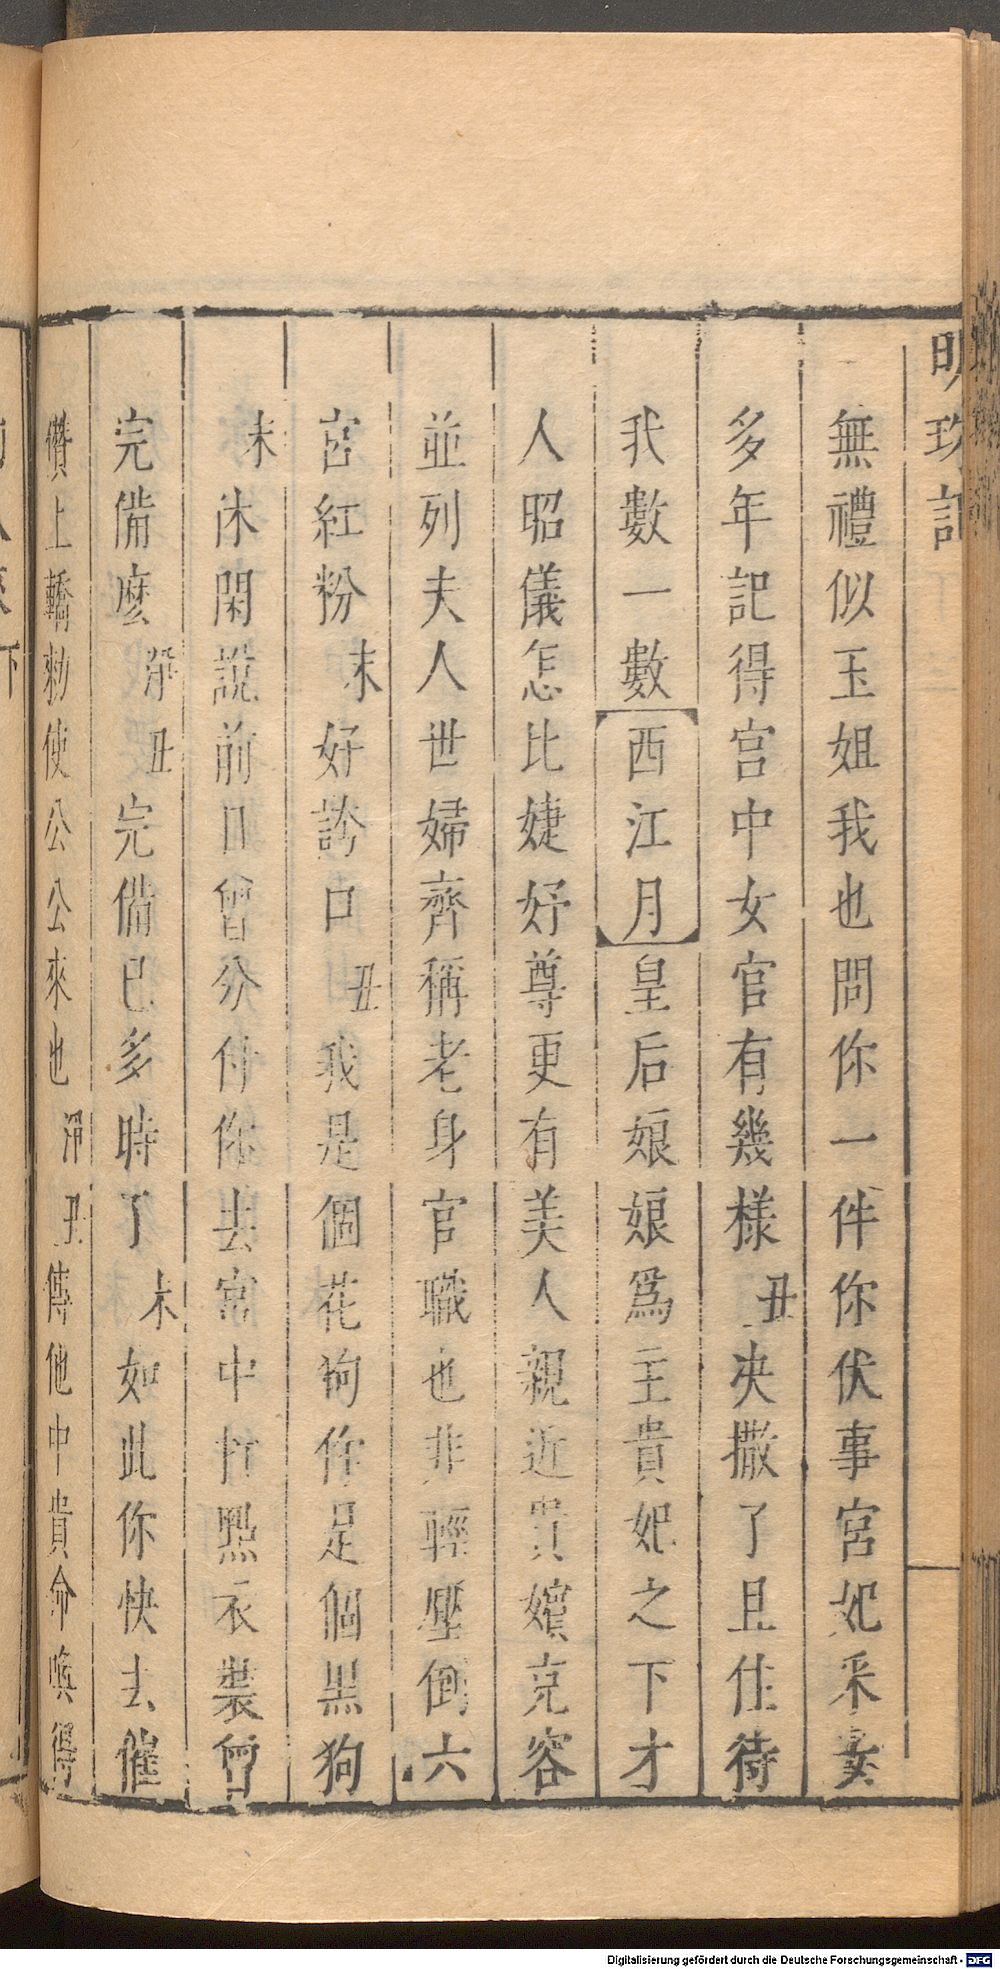 明珠記
無禮似玉姐我也問你一件你伏事宮妃采女
多年記得宮中女官有幾樣丑夬撒了且住待
我數一數西江月皇后娘娘爲主貴妃之下才
人昭儀怎比婕妤尊更有美人親近貴嬪克容
並列夫人世婦齊稱老身官職也非輕壓倒六
宮紅粉末好誇口丑我是個花狗你是個黑狗
末休閑說前日曾分付你去宮中打㸃衣裝曾
完備麽淨丑完備已多時了末如此你快去催
儹上轎勑使公公來也淨丑傳他中貴命喚得
下
Digitalisierung gefördert durch die Deutsche Forschungsgemeinschaft - DFG